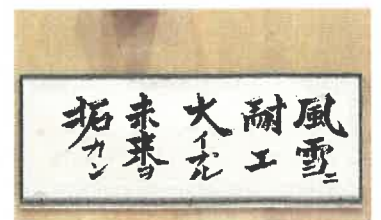 風雪ニ
耐エ
大イナル
未来ヲ
拓カン